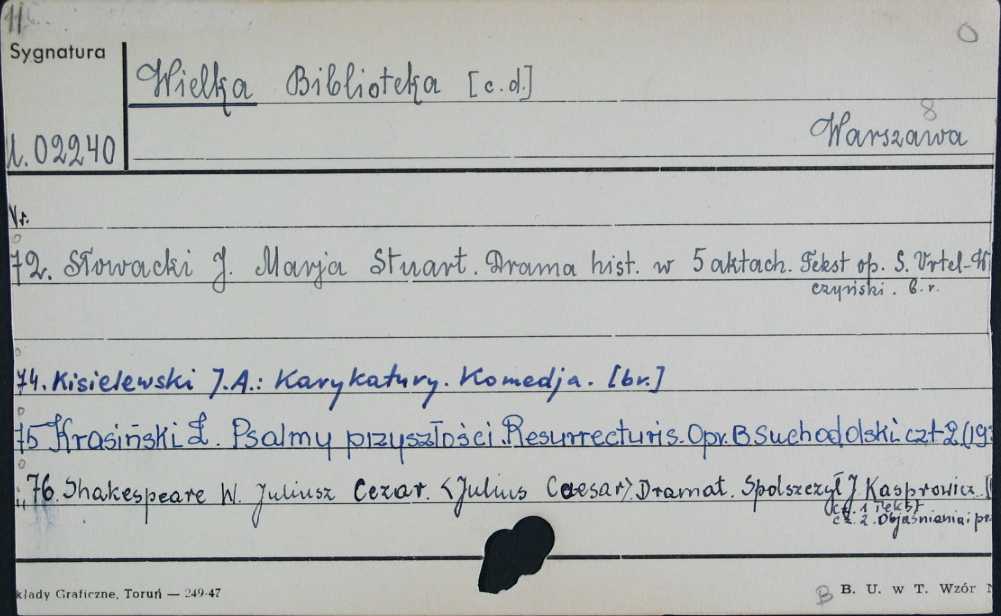 11
Sygnatura
Wielka Biblioteka [c.d.]
8
Warszawa
U. 02240
Nr.
72. Słowacki J. Marja Stuart. Drama hist. w 5 aktach. Tekst op. S. Vrtel-Wi
czyński. b.r.
74. Kisielewski J.A.: Karykatury. Komedja. [br.]
75 Krasiński Z. Psalmy przyszłości. Resurrecturis. Opr. B Suchodolski cz 1-2 (193
„76. Shakespeare W. Juliusz Cezar. <Julius Caesar>. Dramat. Spolszczył J Kasprowicz. [
cz. 1 Tekst
cz. 2. Objaśnienia i pr
kłady Graficzne, Toruń — 249-47
B B. U. w T. Wzór